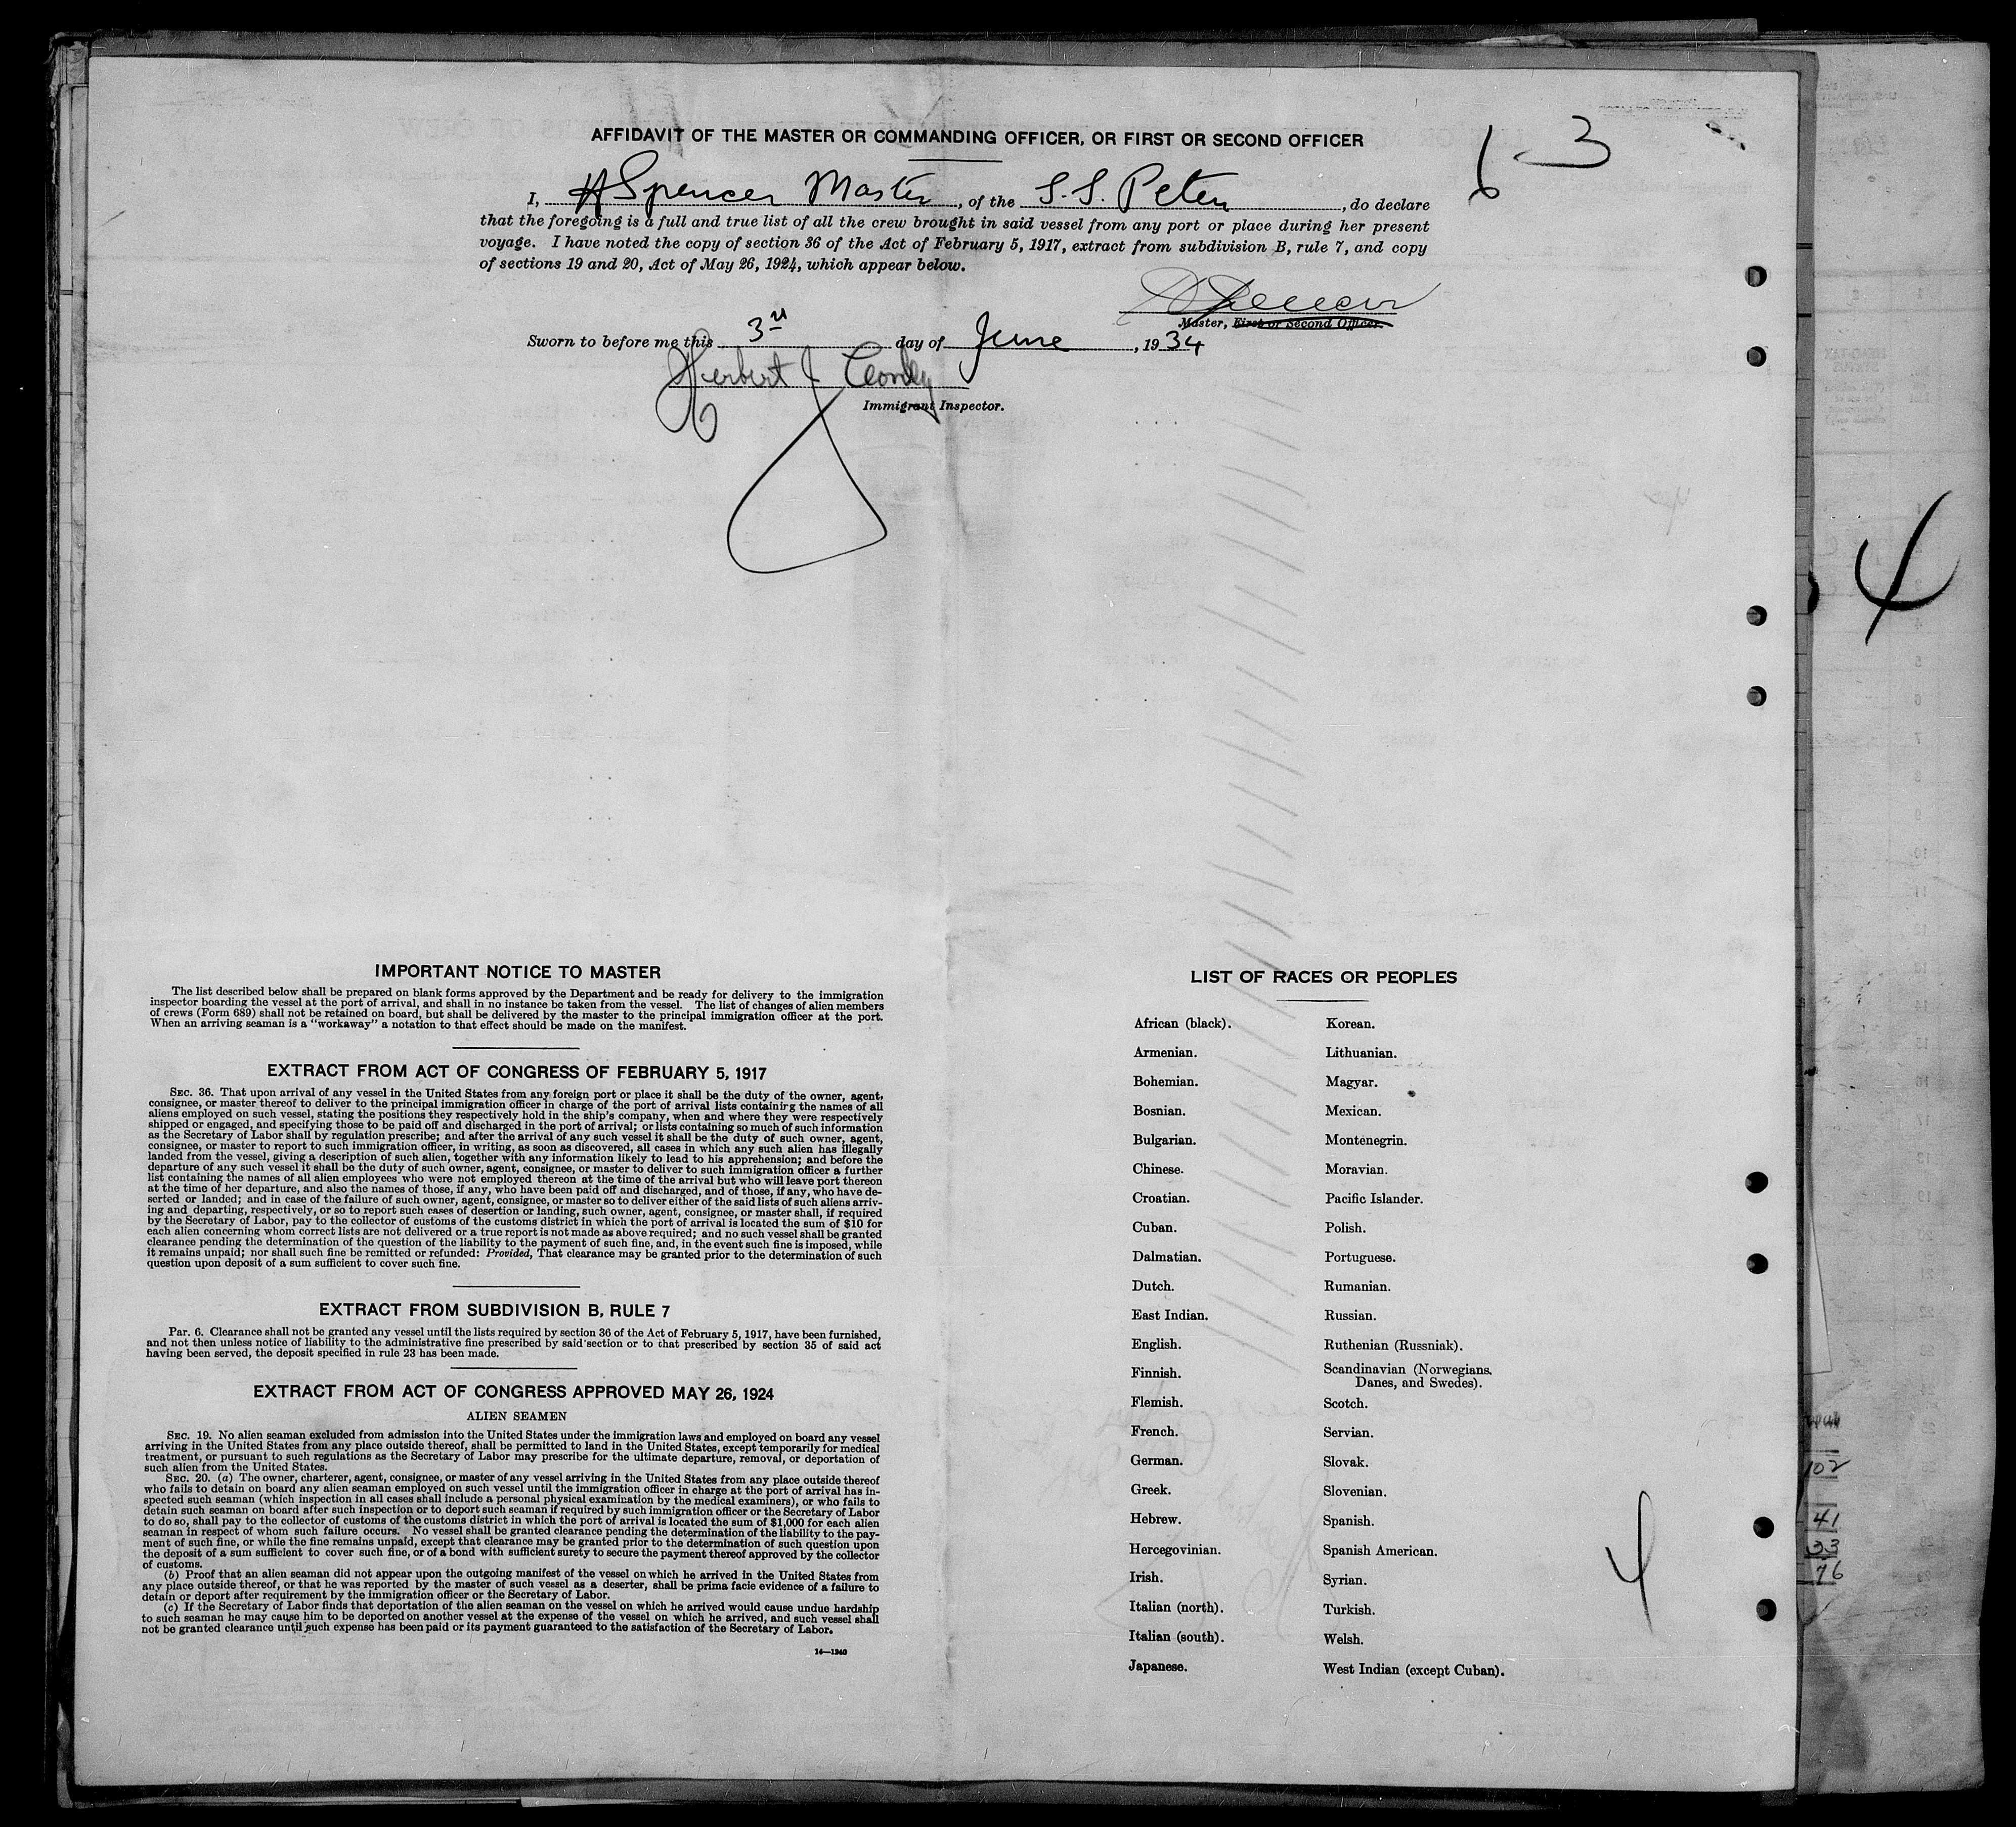 AFFIDAVIT OF THE MASTER OR COMMANDING OFFICER, OR FIRST OR SECOND OFFICER
6-3
I, A Spencer Master, of the S.S. Peten, do declare
that the foregoing is a full and true list of all the crew brought in said vessel from any port or place during her present
voyage. I have noted the copy of section 36 of the Act of February 5, 1917, extract from subdivision B, rule 7, and copy
of sections 19 and 20, Act of May 26, 1924, which appear below.
Spencer
Master, First or Second Officer.
Sworn to before me this 3rd day of June, 1934
Herbert J
Immigrant Inspector.
4
IMPORTANT NOTICE TO MASTER
The list described below shall be prepared on blank forms approved by the Department and be ready for delivery to the immigration
inspector boarding the vessel at the port of arrival, and shall in no instance be taken from the vessel. The list of changes of alien members
of crews (Form 689) shall not be retained on board, but shall be delivered by the master to the principal immigration officer at the port.
When an arriving seaman is a "workaway" a notation to that effect should be made on the manifest.
EXTRACT FROM ACT OF CONGRESS OF FEBRUARY 5, 1917
SEC. 36. That upon arrival of any vessel in the United States from any foreign port or place it shall be the duty of the owner, agent,
consignee, or master thereof to deliver to the principal immigration officer in charge of the port of arrival lists containing the names of all
aliens employed on such vessel, stating the positions they respectively hold in the ship's company, when and where they were respectively
shipped or engaged, and specifying those to be paid off and discharged in the port of arrival; or lists containing so much of such information
as the Secretary of Labor shall by regulation prescribe; and after the arrival of any such vessel it shall be the duty of such owner, agent,
consignee, or master to report to such immigration officer, in writing, as soon as discovered, all cases in which any such alien has illegally
landed from the vessel, giving a description of such alien, together with any information likely to lead to his apprehension; and before the
departure of any such vessel it shall be the duty of such owner, agent, consignee, or master to deliver to such immigration officer a further
list containing the names of all alien employees who were not employed thereon at the time of the arrival but who will leave port thereon
at the time of her departure, and also the names of those, if any, who have been paid off and discharged, and of those, if any, who have de-
serted or landed; and in case of the failure of such owner, agent, consignee, or master so to deliver either of the said lists of such aliens arriv-
ing and departing, respectively, or so to report such cases of desertion or landing, such owner, agent, consignee, or master shall, if required
by the Secretary of Labor, pay to the collector of customs of the customs district in which the port of arrival is located the sum of $10 for
each alien concerning whom correct lists are not delivered or a true report is not made as above required; and no such vessel shall be granted
clearance pending the determination of the question of the liability to the payment of such fine, and, in the event such fine is imposed, while
it remains unpaid; nor shall such fine be remitted or refunded: Provided, That clearance may be granted prior to the determination of such
question upon deposit of a sum sufficient to cover such fine.
EXTRACT FROM SUBDIVISION B, RULE 7
PAR. 6. Clearance shall not be granted any vessel until the lists required by section 36 of the Act of February 5, 1917, have been furnished,
and not then unless notice of liability to the administrative fine prescribed by said section or to that prescribed by section 35 of said act
having been served, the deposit specified in rule 23 has been made.
EXTRACT FROM ACT OF CONGRESS APPROVED MAY 26, 1924
ALIEN SEAMEN
SEC. 19. No alien seaman excluded from admission into the United States under the immigration laws and employed on board any vessel
arriving in the United States from any place outside thereof, shall be permitted to land in the United States, except temporarily for medical
treatment, or pursuant to such regulations as the Secretary of Labor may prescribe for the ultimate departure, removal, or deportation of
such alien from the United States.
SEC. 20. (a) The owner, charterer, agent, consignee, or master of any vessel arriving in the United States from any place outside thereof
who fails to detain on board any alien seaman employed on such vessel until the immigration officer in charge at the port of arrival has in-
spected such seaman (which inspection in all cases shall include a personal physical examination by the medical examiners), or who fails to
detain such seaman on board after such inspection or to deport such seaman if required by such immigration officer or the Secretary of Labor
to do so, shall pay to the collector of customs of the customs district in which the port of arrival is located the sum of $1,000 for each alien
seaman in respect of whom such failure occurs. No vessel shall be granted clearance pending the determination of the liability to the pay-
ment of such fine, or while the fine remains unpaid, except that clearance may be granted prior to the determination of such question upon
the deposit of a sum sufficient to cover such fine, or of a bond with sufficient surety to secure the payment thereof approved by the collector
of customs.
(b) Proof that an alien seaman did not appear upon the outgoing manifest of the vessel on which he arrived in the United States from
any place outside thereof, or that he was reported by the master of such vessel as a deserter, shall be prima facie evidence of a failure to
detain or deport after requirement by the immigration officer or the Secretary of Labor.
(c) If the Secretary of Labor finds that deportation of the alien seaman on the vessel on which he arrived would cause undue hardship
to such seaman he may cause him to be deported on another vessel at the expense of the vessel on which he arrived, and such vessel shall
not be granted clearance until such expense has been paid or its payment guaranteed to the satisfaction of the Secretary of Labor.
14—1240
LIST OF RACES OR PEOPLES
African (black).
Armenian.
Bohemian.
Bosnian.
Bulgarian.
Chinese.
Croatian.
Cuban.
Dalmatian.
Dutch.
East Indian.
English.
Finnish.
Flemish.
French.
German.
Greek.
Hebrew.
Hercegovinian.
Irish.
Italian (north).
Italian (south).
Japanese.
Korean.
Lithuanian.
Magyar.
Mexican.
Montenegrin.
Moravian.
Pacific Islander.
Polish.
Portuguese.
Rumanian.
Russian.
Ruthenian (Russniak).
Scandinavian (Norwegians,
Danes, and Swedes).
Scotch.
Servian.
Slovak.
Slovenian.
Spanish.
Spanish American.
Syrian.
Turkish.
Welsh.
West Indian (except Cuban).
4
102
41
33